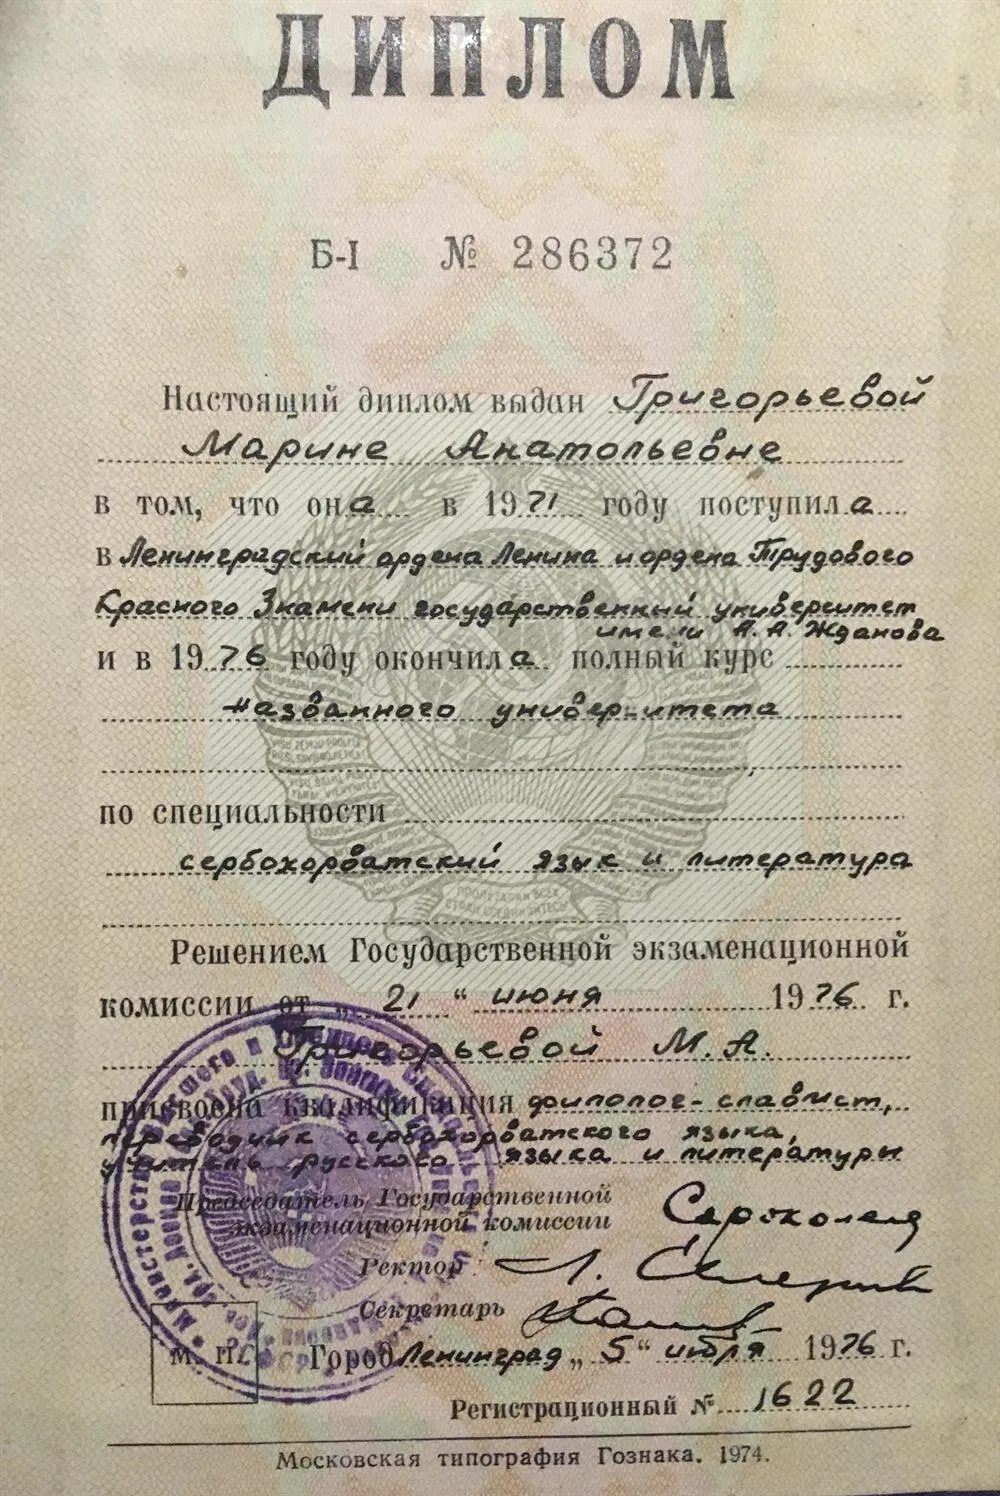 ДИПЛОМ
Б-I № 286372
Настоящий диплом выдан Григорьевой
Марине Анатольевне
в том, что она в 1971 году поступила
в Ленинградский ордена Ленина и ордена Трудового
Красного Знамени государственный университет
имени А. А. Жданова
и в 1976 году окончила полный курс
названного университета
по специальности
сербохорватский язык и литература
Решением Государственной экзаменационной
комиссии от „21“ июня 1976 г.
Григорьевой М. А.
присвоена квалификация филолог-славист,
переводчик сербохорватского языка,
учитель русского языка и литературы
Председатель Государственной
экзаменационной комиссии
Ректор
Секретарь
М. П. Город Ленинград „5“ июля 1976 г.
Регистрационный № 1622
Московская типография Гознака. 1974.